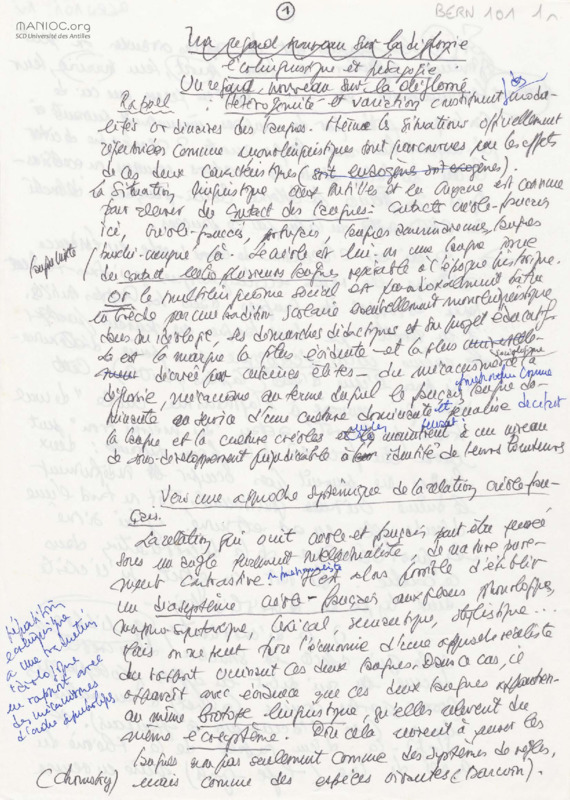 1
BERN 101 1r
MANIOC.org
SCD Université des Antilles
Un regard nouveau sur la diglossie
Ecolinguistique et pédagogie.
Un regard nouveau sur la diglossie
Rappel : Hétérogénéité et variation constituent des moda-
lités ordinaires des langues. Même les situations officiellement
répertoriées comme monolinguistiques sont parcourues par les effets
de ces deux caractéristiques
La situation linguistique aux Antilles et en Guyane est connue
pour relever du contact des langues : contacts créole-français
ici, créole-français, portugais, langues amérindiennes, langues
là. Le créole est lui-même une langue issue
du contact entre plusieurs langues repérable à l'époque historique.
Or le multilinguisme social est paradoxalement battu
en brèche par une tradition scolaire essentiellement monolinguistique
dans son idéologie, ses démarches didactiques et son projet éducatif.
Là est la marque la plus évidente et la plus
par certaines élites du mécanisme de la
diglossie, mécanisme au terme duquel le français langue do-
minante au service d'une culture dominante pénalise
la langue et la culture créoles maintient à un niveau
de sous-développement préjudiciable à identité de leurs locuteurs
Vers une approche systémique de la relation créole-fran-
çais.
La relation qui unit créole et français peut être pensée
sous un angle purement intellectualiste, de nature pure-
ment contrastive. Il est alors possible d'établir
un diasystème créole-français aux plans phonologique,
morpho-syntaxique, lexical, sémantique, stylistique...
Mais on ne peut faire l'économie d'une approche réaliste
du rapport unissant ces deux langues. Dans ce cas, il
apparaît avec évidence que ces deux langues appartien-
au même biotope linguistique, qu'elles relèvent du
même écosystème. Or cela revient à penser les
langues non pas seulement comme des systèmes de règles,
(Chomsky) mais comme des espèces vivantes (Darwin).
répartition
écologique
a une traduction
idéologique
en rapport avec
des mécanismes
d'ordre symbolique